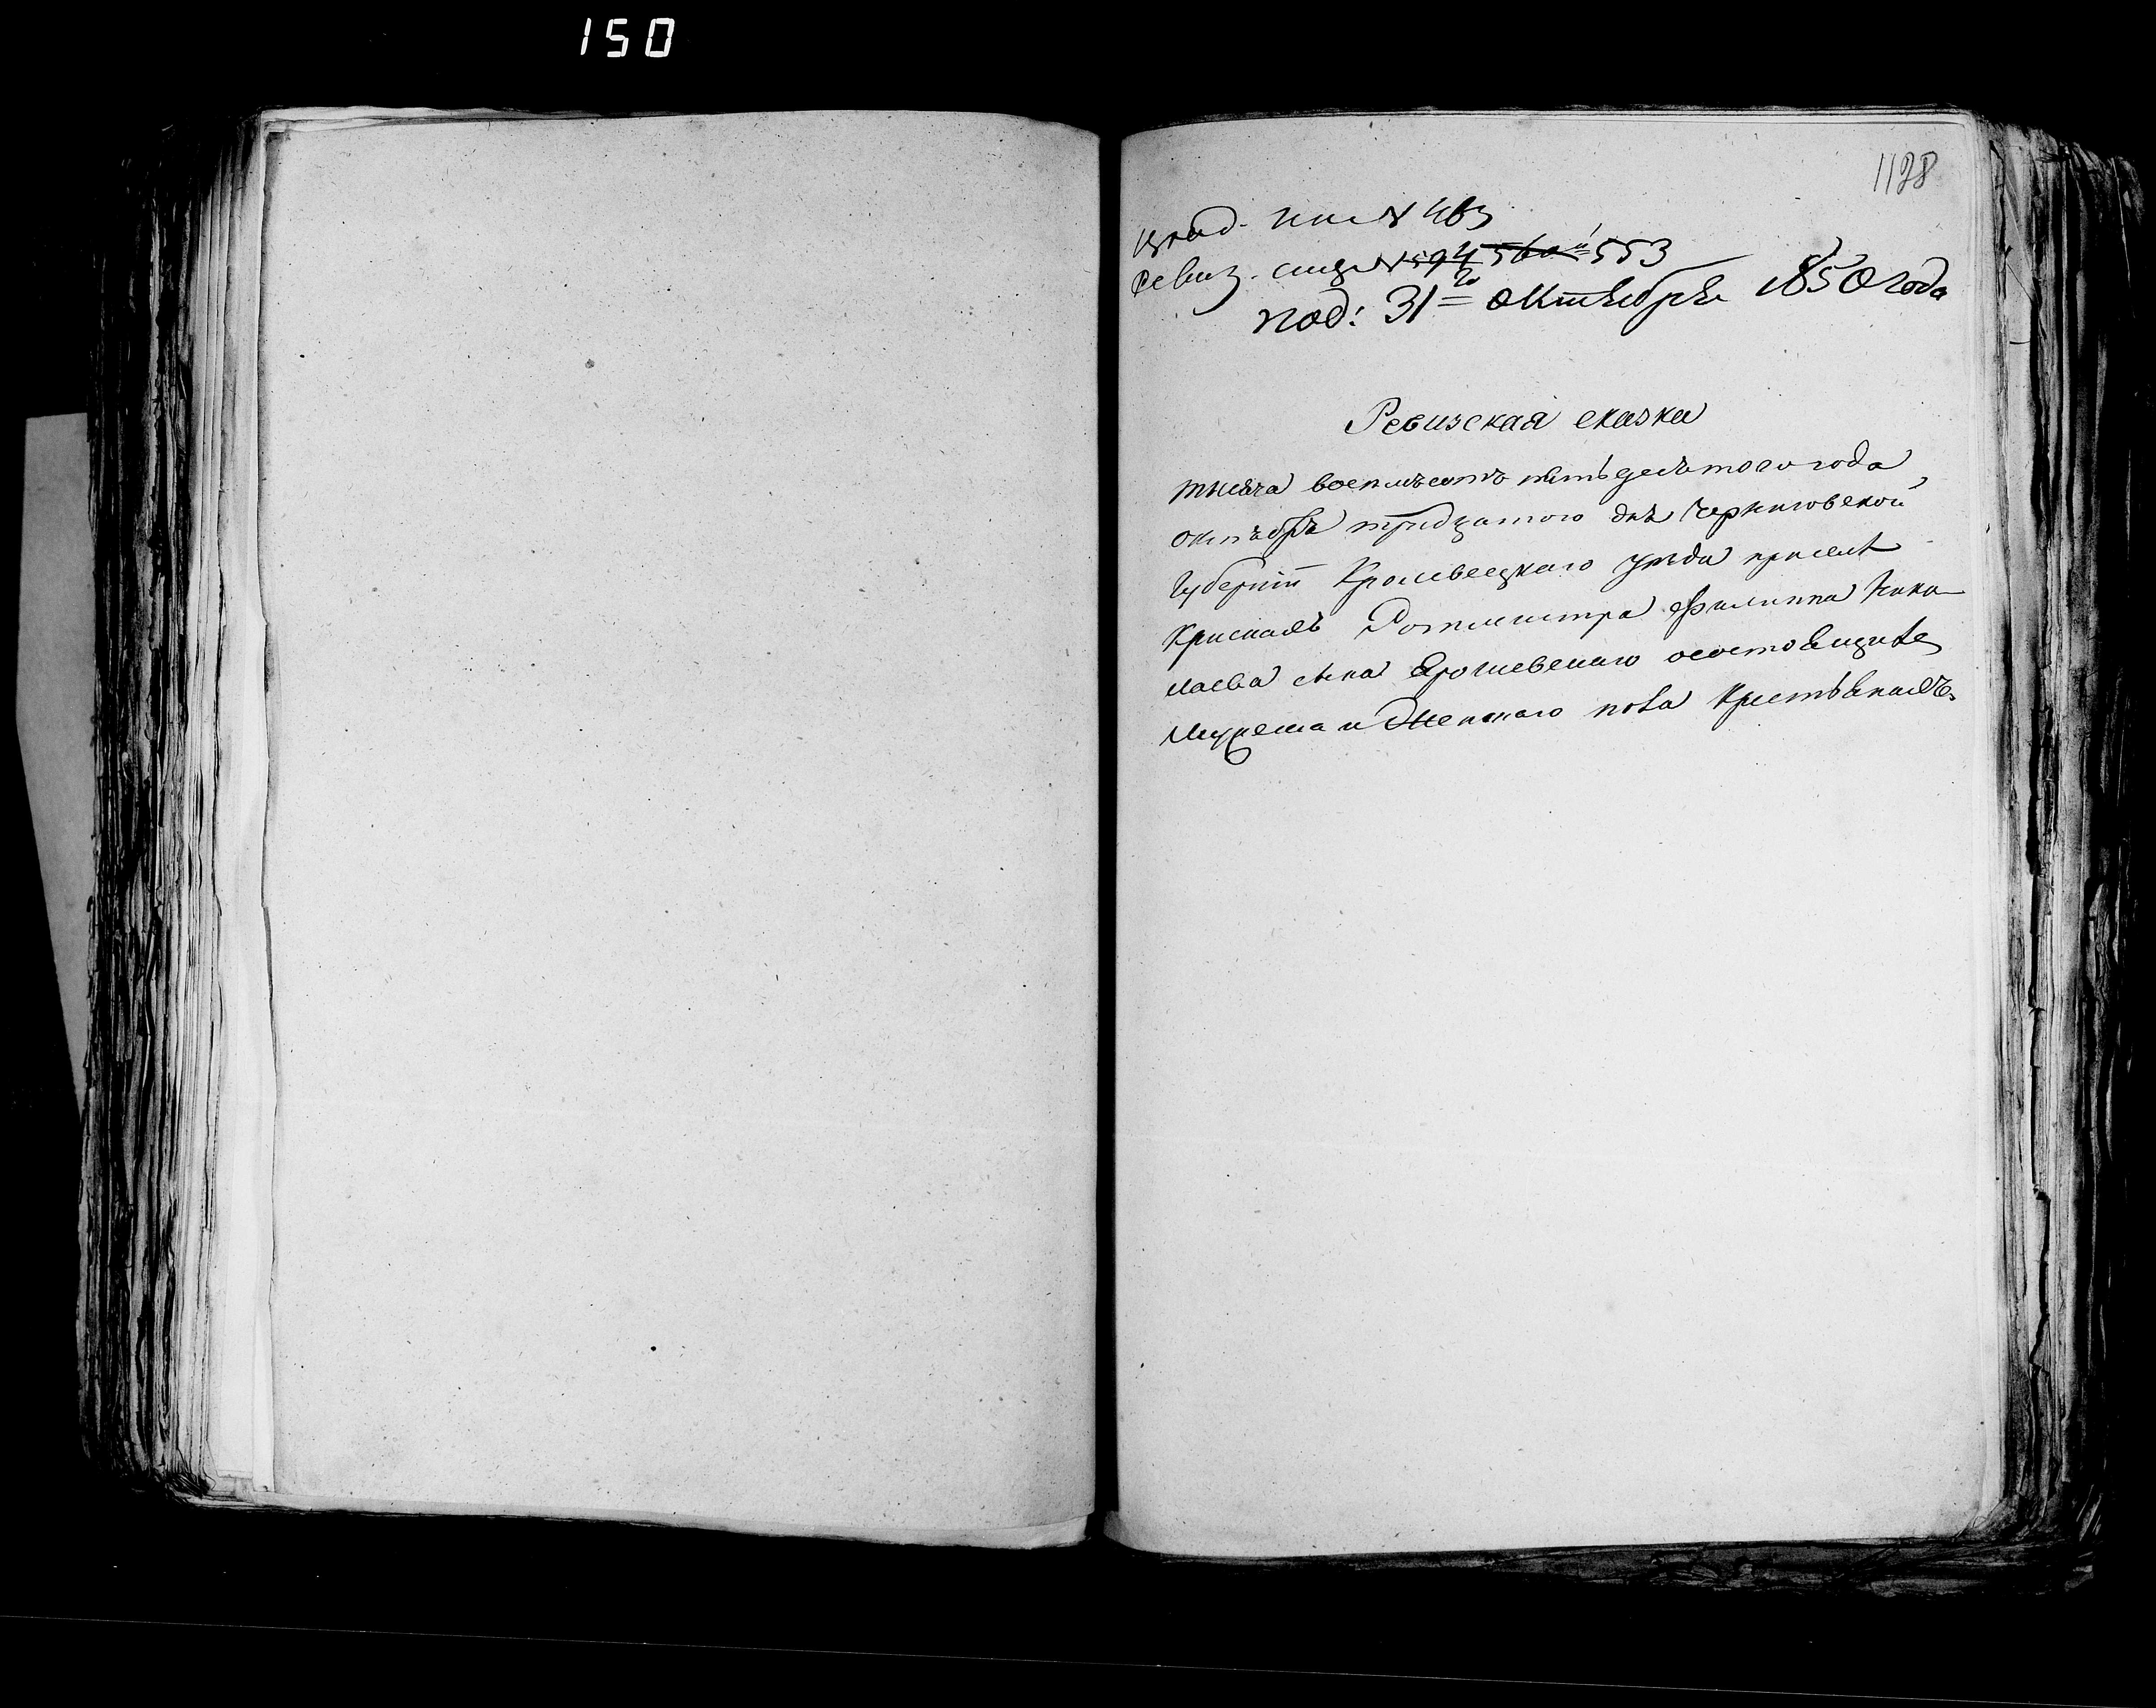 150
1128
№ 463
ревиз. 553
под: 31го октября 1850 года
Ревизская сказка
тысяча восемъсотъ пятьдесятого года
октября тридцатого дня Черниговской
Губернiи Кролевецкаго уезда
Ротмистра Филиппа Нико
лаева сына Ярошевскаго о состоящихъ
мужеска и женскаго пола крестьянахъ